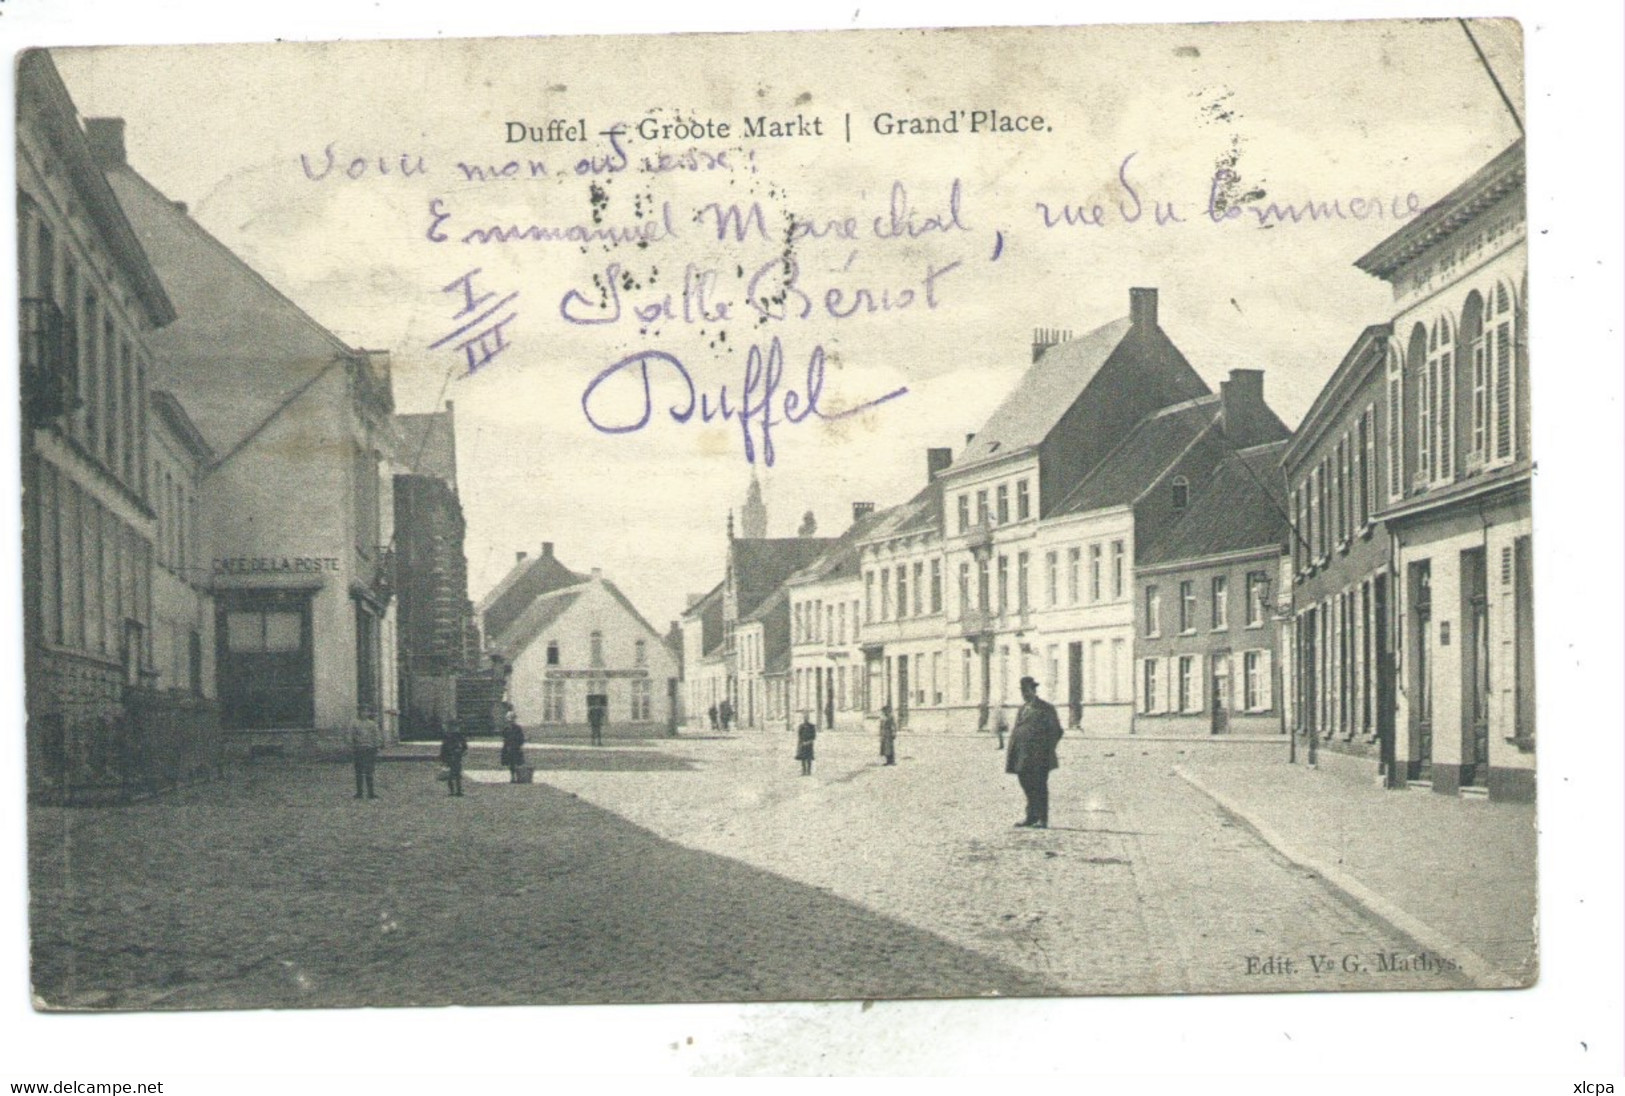 Duffel — Groote Markt | Grand'Place.
Voici mon adresse:
Emmanuel Maréchal, rue du Commerce
I
III
Salle Bériot
Duffel
CAFE DE LA POSTE
Edit. Ve G. Mathys.
www.delcampe.net
xlcpa